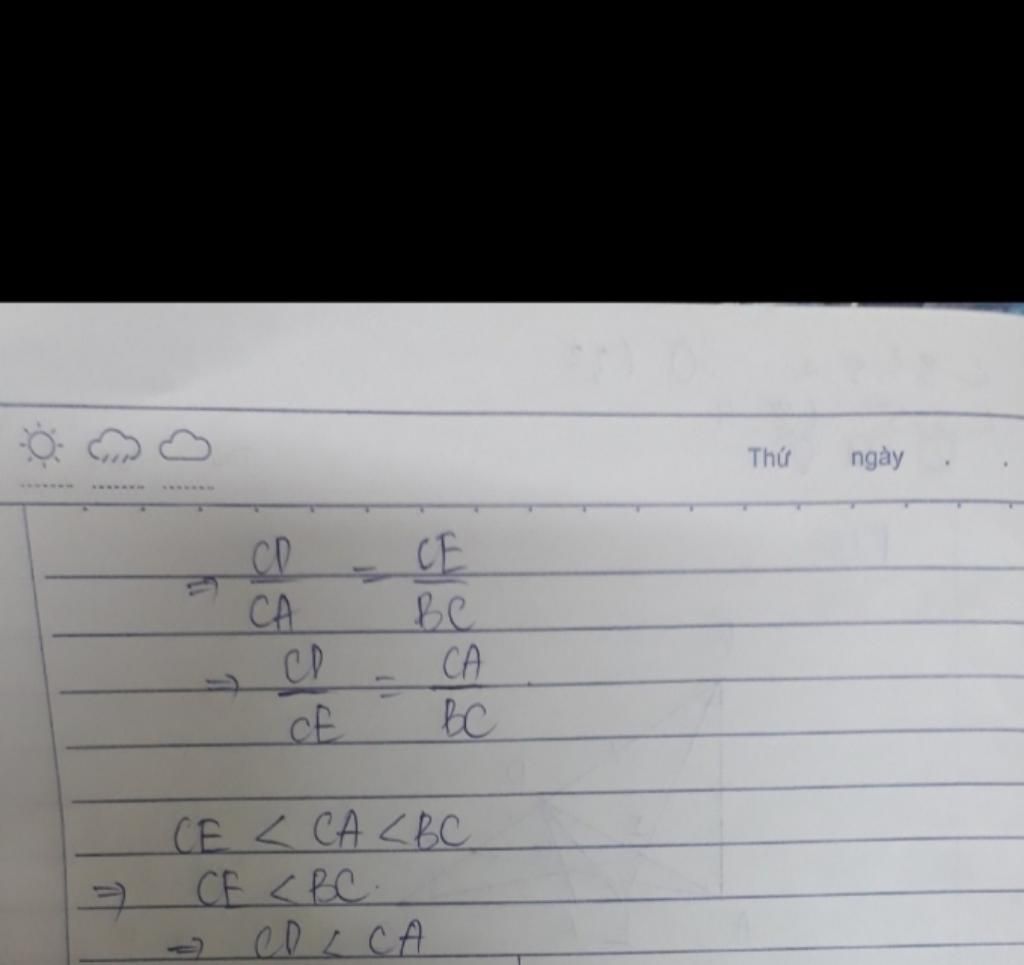 Thứ ngày . .
⇒ CD/CA = CE/BC
⇒ CD/CE = CA/BC
CE < CA < BC
⇒ CE < BC.
⇒ CD < CA